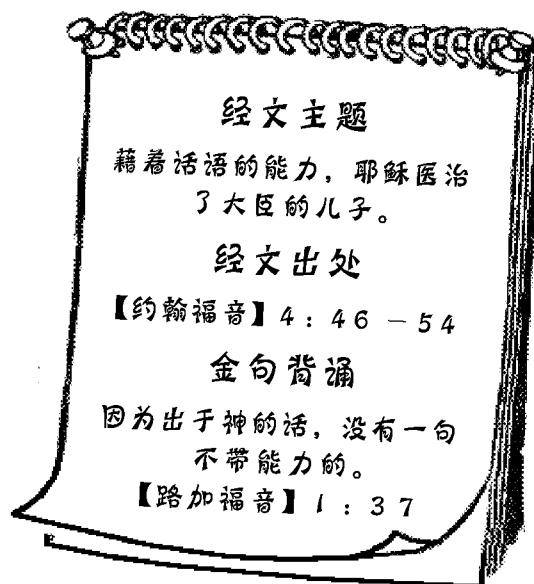 经文主题
藉着话语的能力，耶稣医治
了大臣的儿子。
经文出处
【约翰福音】4：46－54
金句背诵
因为出于神的话，没有一句
不带能力的。
【路加福音】1：37